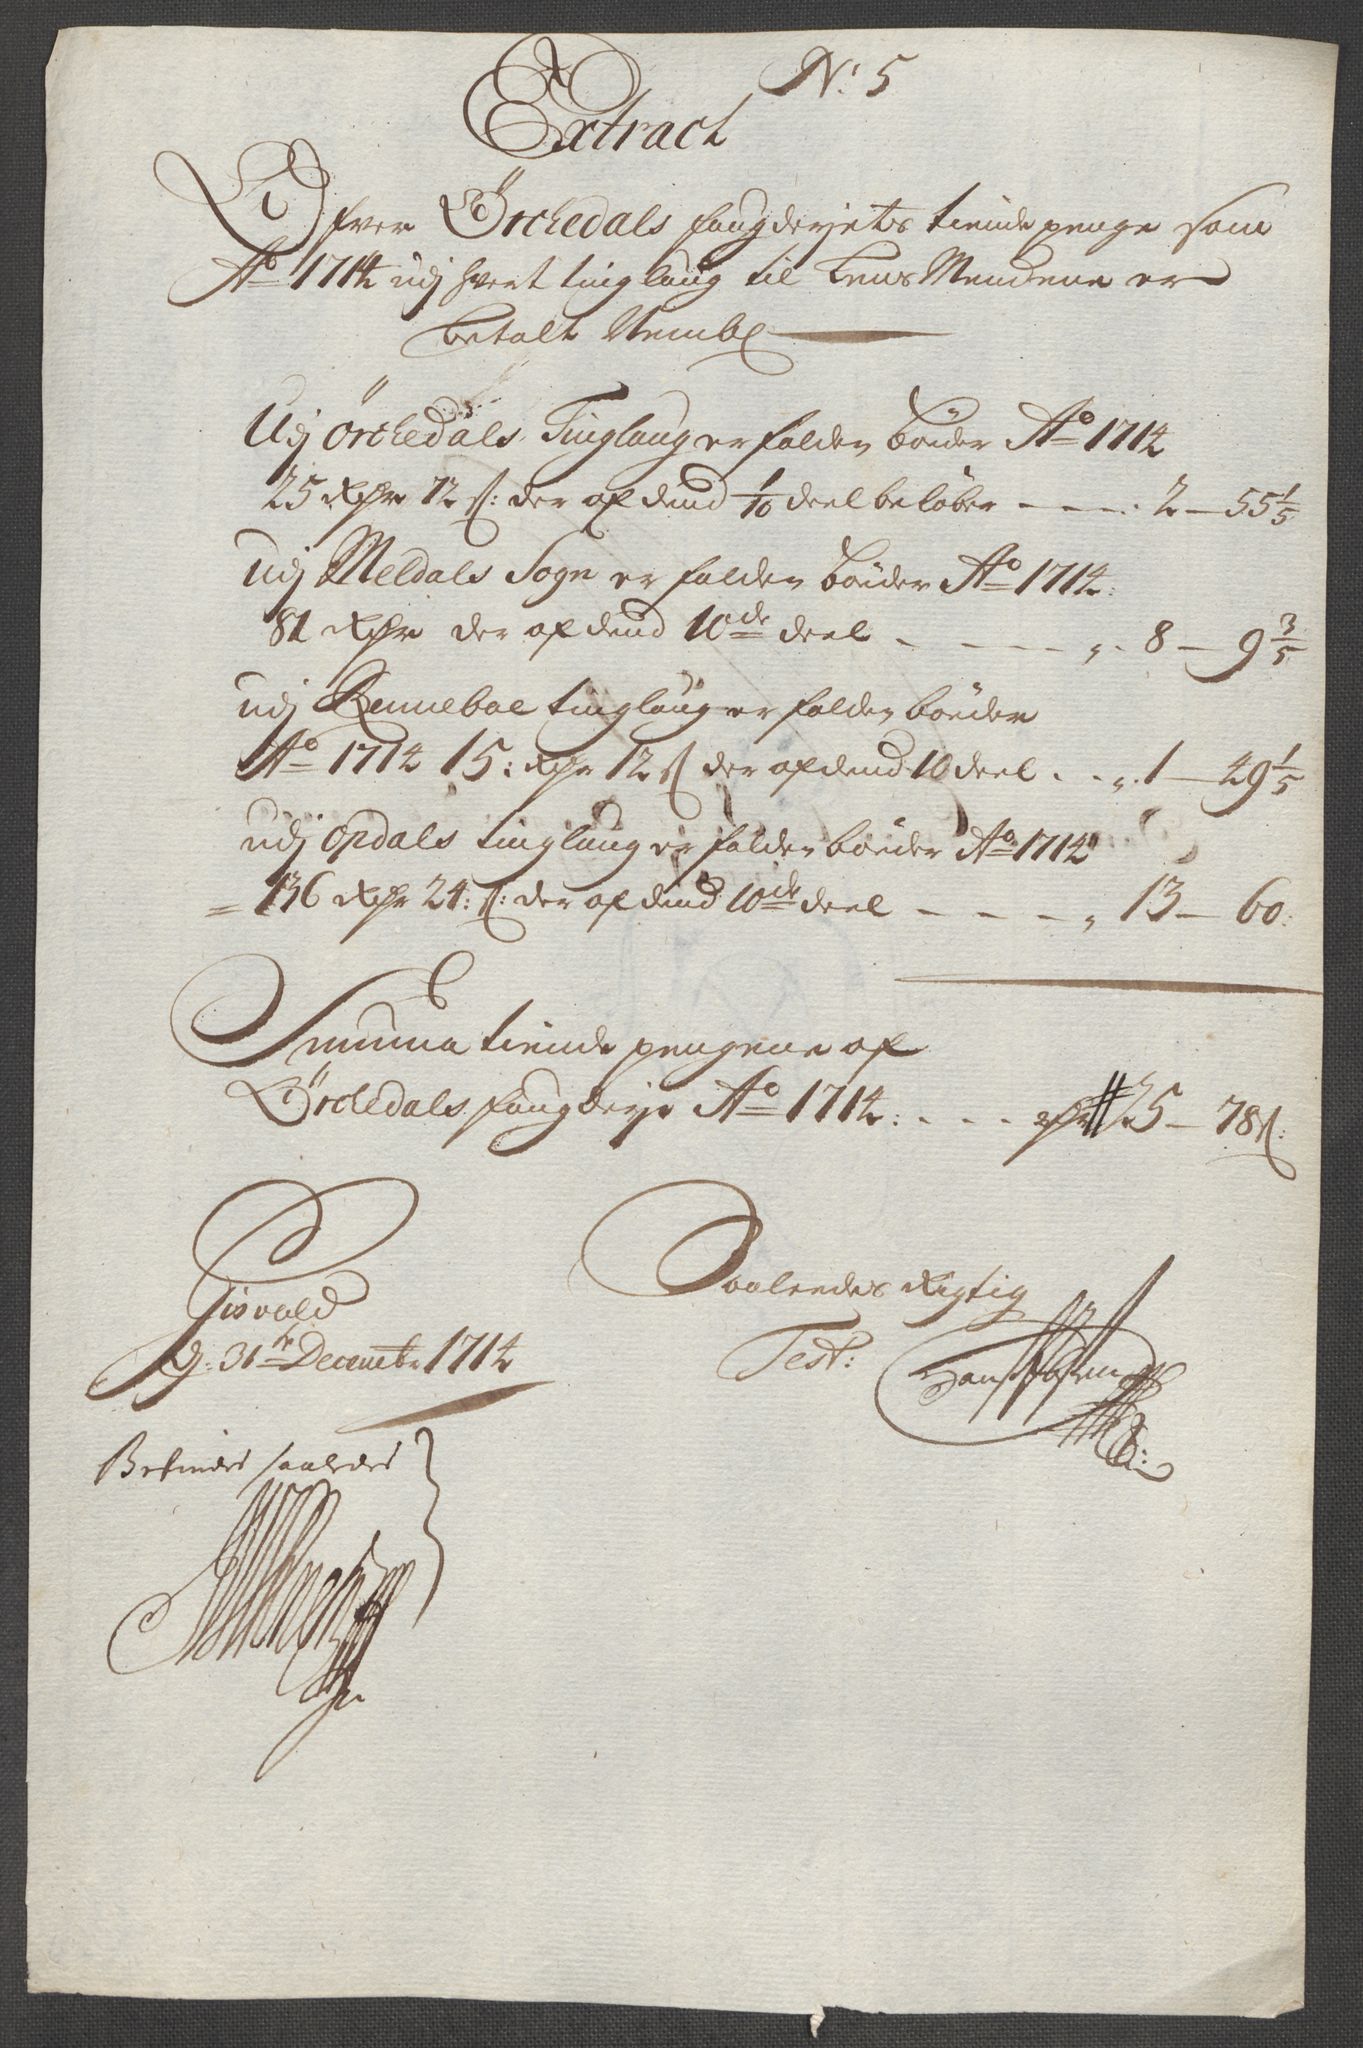 No: 5
Extract
Ofver Örchedals fougderjets tiende penge som
Ao 1714 udj hvert tinglaug til Lens Mendene er
betalt Nembl
Udj Örchedals Tinglaug er falden bøder Ao 1714
25 Rdr 72 s: der af dend 1/10 deel beløber - - - . 2 - 55 1/5
Udj Meldals Sogn er falden bøder Ao 1714:
81 Rdr der af dend 10de deel - - - - - „ . 8 - 9 3/5
udj Renneboe tinglaug er falden bøeder
Ao 1714 15: Rdr 12 s der af dend 10 deel . - „ . 1 - 49 1/5
udj Opdals tinglaug er falden bøeder Ao 1714
= 136 Rdr 24: s: der af dend 10de deel - - - - „ 13 - 60:
Summa tiende pengene af
Örchedals fougderje Ao 1714: . - - . Rdr 25 - 78 s:
Gisvald
d: 31te Decembr 1714
Saaledes Rigtig
Test:
Befindes saaledes